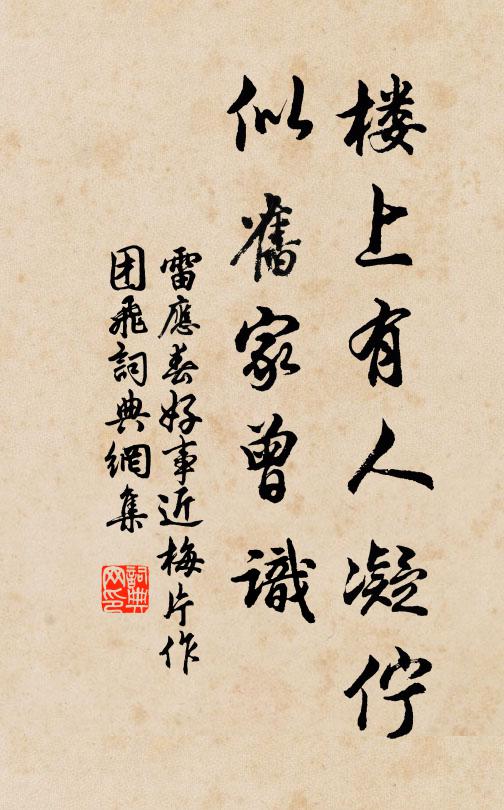 楼上有人凝佇
似舊家曾識
雷應春好事近梅片作
团飛詞典網集
詞典
网印